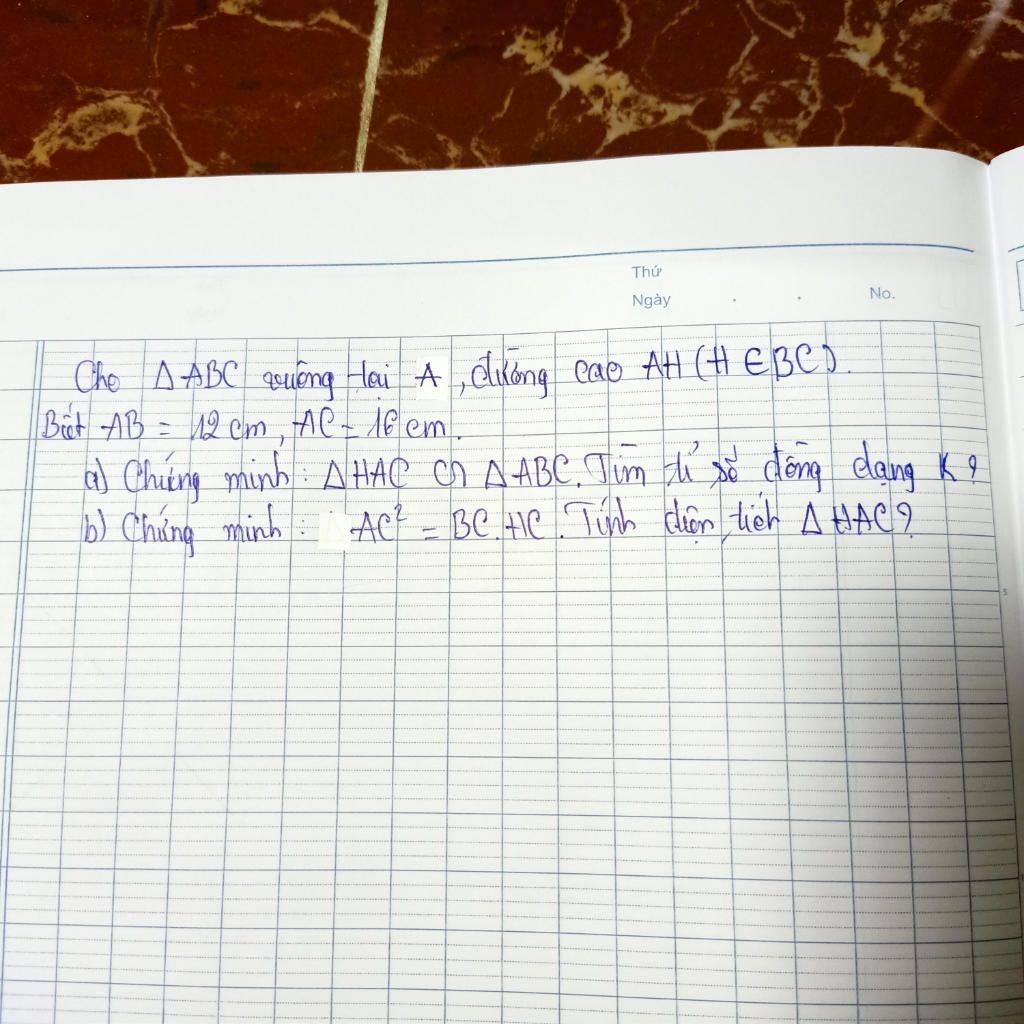 Thứ
Ngày . . No.
Cho Δ ABC vuông tại A, đường cao AH (H ∈ BC).
Biết AB = 12 cm, AC = 16 cm.
a) Chứng minh : Δ HAC ∽ Δ ABC. Tìm tỉ số đồng dạng K?
b) Chứng minh : AC² = BC. HC. Tính diện tích Δ HAC?